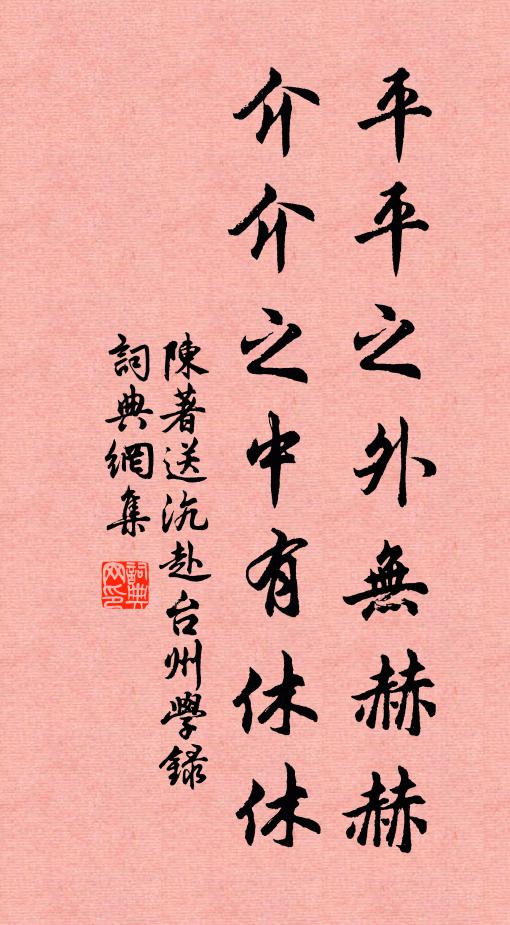 平平之外無赫赫
介介之中有休休
陳著送沇赴台州學録
詞典網集
詞典网印